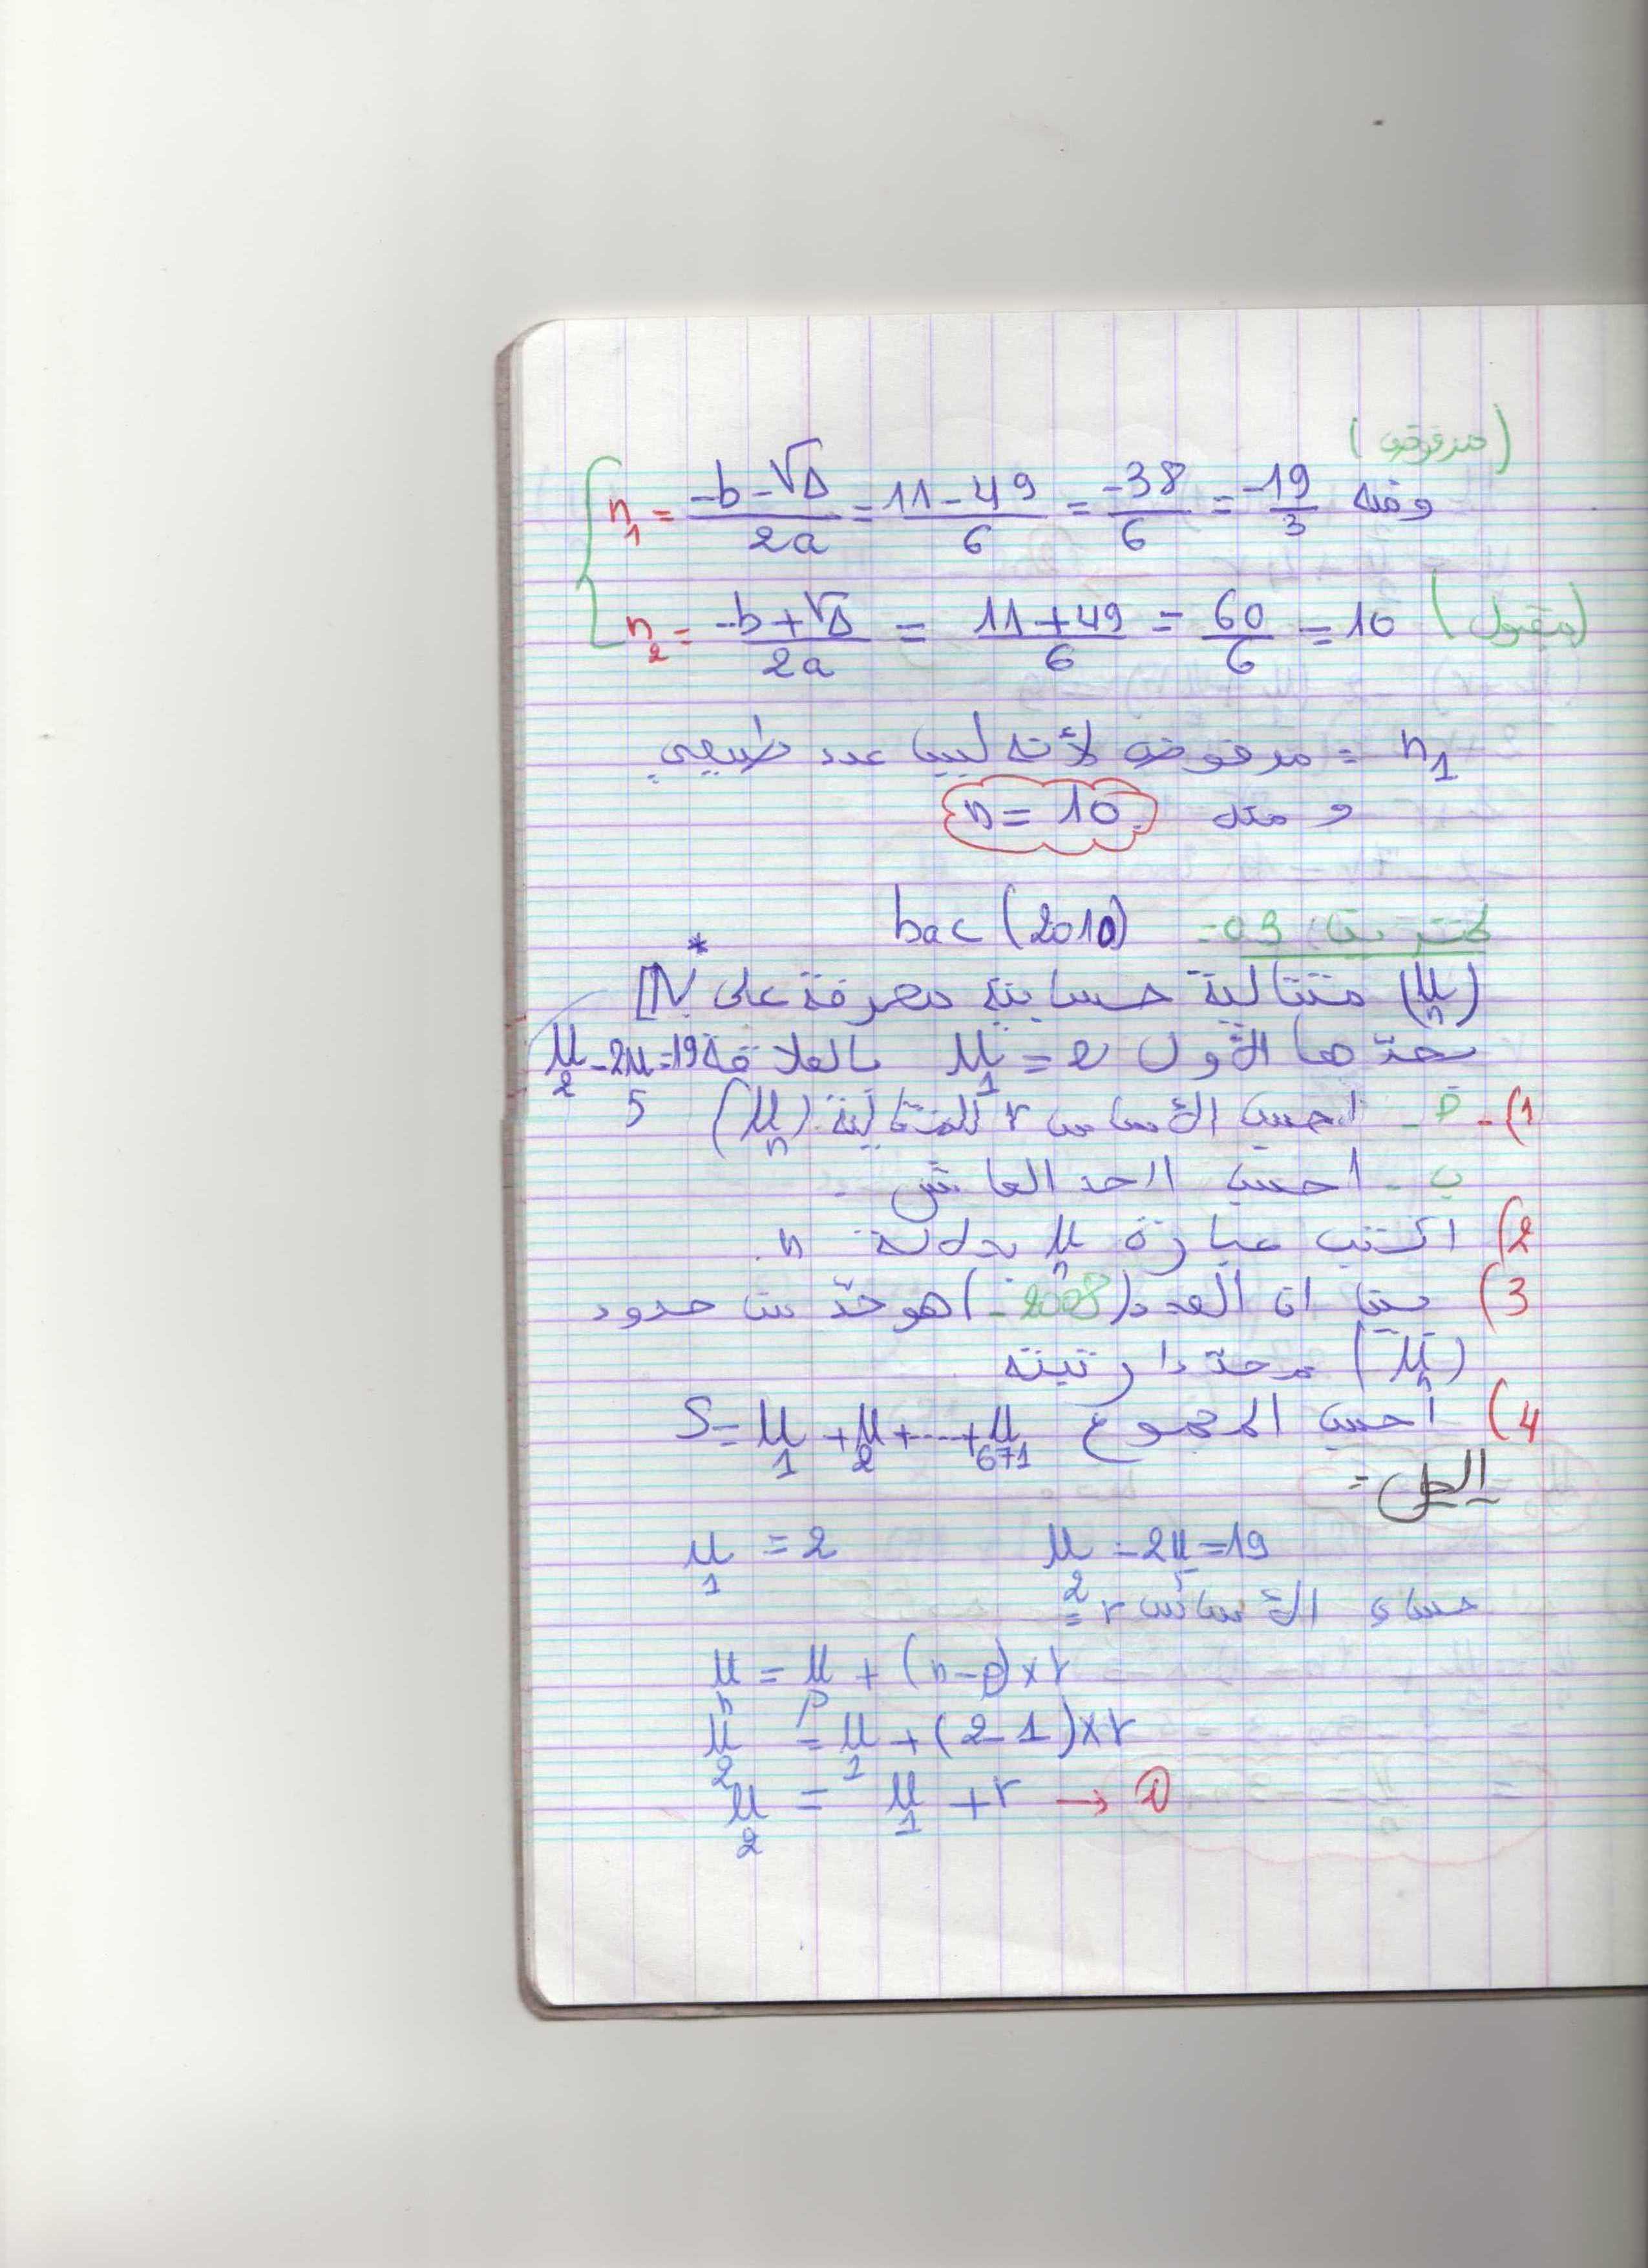 (مرفوض)
ومنه n₁ = (-b-√Δ)/2a = (11-49)/6 = -38/6 = -19/3
n₂ = (-b+√Δ)/2a = (11+49)/6 = 60/6 = 10 (مقبول)
n₁ = مرفوض لأنه ليس عدد طبيعي
ومنه n = 10
تمرين 03:- bac (2010)
(Uₙ) متتالية حسابية معرفة على ℕ*
بحدها الأول U₁ = 2 بالعلاقة U₂ - 2U₅ = 19
1)- أ- احسب الأساس r للمتتالية (Uₙ)
ب- احسب الحد العاشر.
2) اكتب عبارة Uₙ بدلالة n.
3) بين ان العدد (-2008) هو حد من حدود
(Uₙ) محددا رتبته
4) أحسب المجموع S = U₁ + U₂ + ... + U₆₇₁
الحل:
U₁ = 2 U₂ - 2U₅ = 19
حساب الأساس r =
Uₙ = Uₚ + (n-p)×r
U₂ = U₁ + (2-1)×r
U₂ = U₁ + r → ①